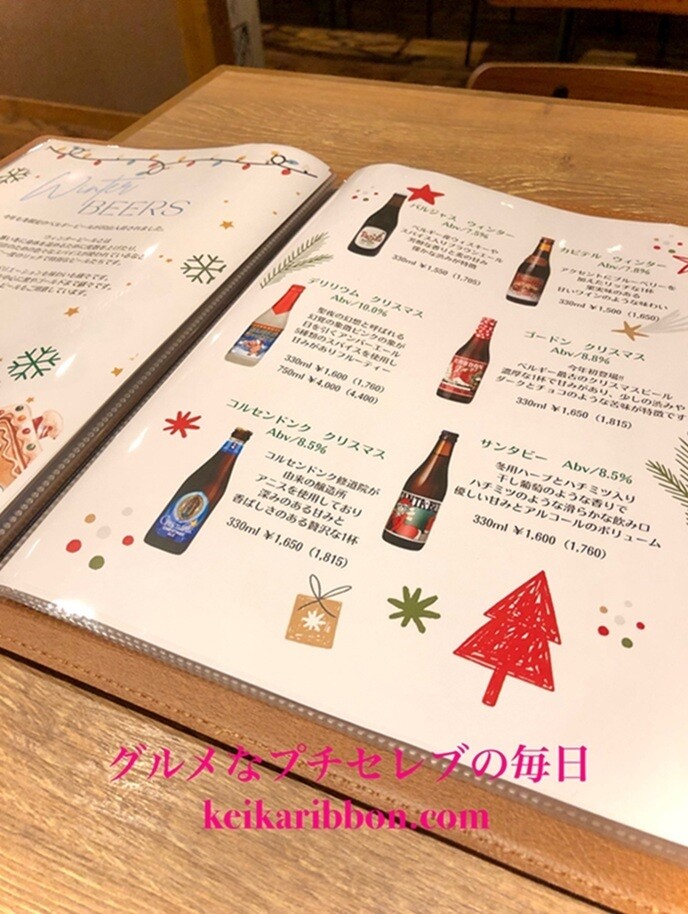 Winter
BEERS
バルジャス ウィンター
Abv/7.5%
ベルギー産ウィスキーや
スパイス入りブラウンエール
芳醇な香りと麦の甘み
確かな渋みが特徴
330ml ¥1,550 (1,705)
カピテル ウィンター
Abv/7.8%
アクセントにブルーベリーを
加えたリッチな1杯
果実味のある
甘いワインのような味わい
330ml ¥1,500 (1,650)
デリリウム クリスマス
Abv/10.0%
聖夜の幻想と呼ばれる
幻覚の象徴ピンクの象が
目を引くアンバーエール
5種類のスパイスを使用し
甘みがありフルーティー
330ml ¥1,600 (1,760)
750ml ¥4,000 (4,400)
ゴードン クリスマス
Abv/8.8%
今年初登場!!
ベルギー最古のクリスマスビール
濃厚な1杯で甘みがあり、少しの渋みや
ダークとチョコのような苦味が特徴です
330ml ¥1,650 (1,815)
コルセンドンク クリスマス
Abv/8.5%
コルセンドンク修道院が
由来の醸造所
アニスを使用しており
深みのある甘みと
香ばしさのある贅沢な1杯
330ml ¥1,650 (1,815)
サンタビー Abv/8.5%
冬用ハーブとハチミツ入り
干し葡萄のような香りで
ハチミツのような滑らかな飲み口
優しい甘みとアルコールのボリューム
330ml ¥1,600 (1,760)
グルメなプチセレブの毎日
keikaribbon.com